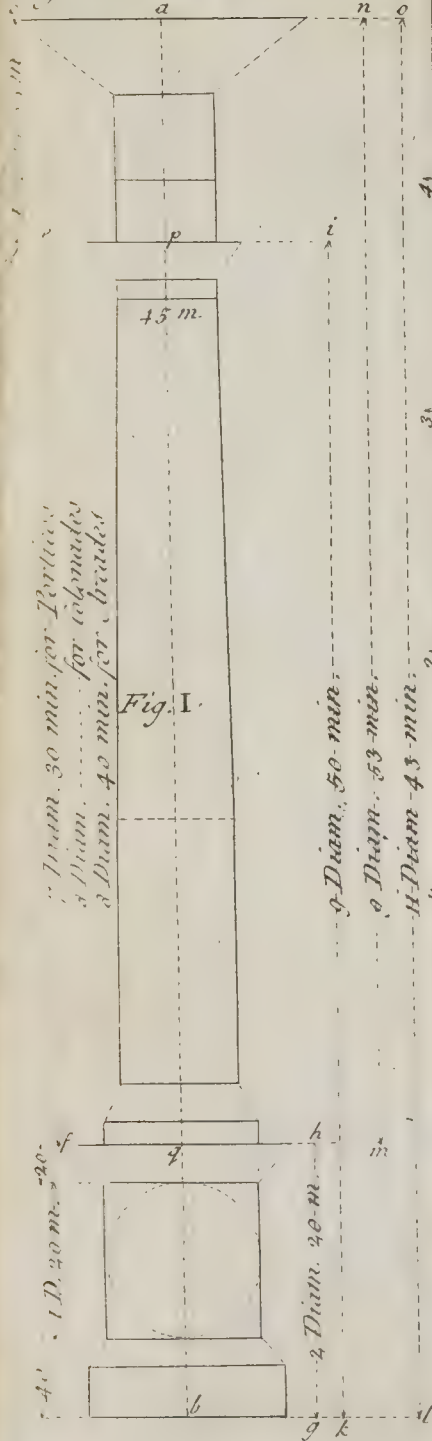 a n o
4
p i
45 m.
3
Diam. 30 min. for Porticos
8 Diam. ........ for Colonades
8 Diam. 40 min. for Arcades
Fig. I.
2
9 Diam. 50 min.
9 Diam. 53 min.
11 Diam 43 min.
f q h m
20
1 D. 20 m.
2 Diam. 20 m.
40
b g k l